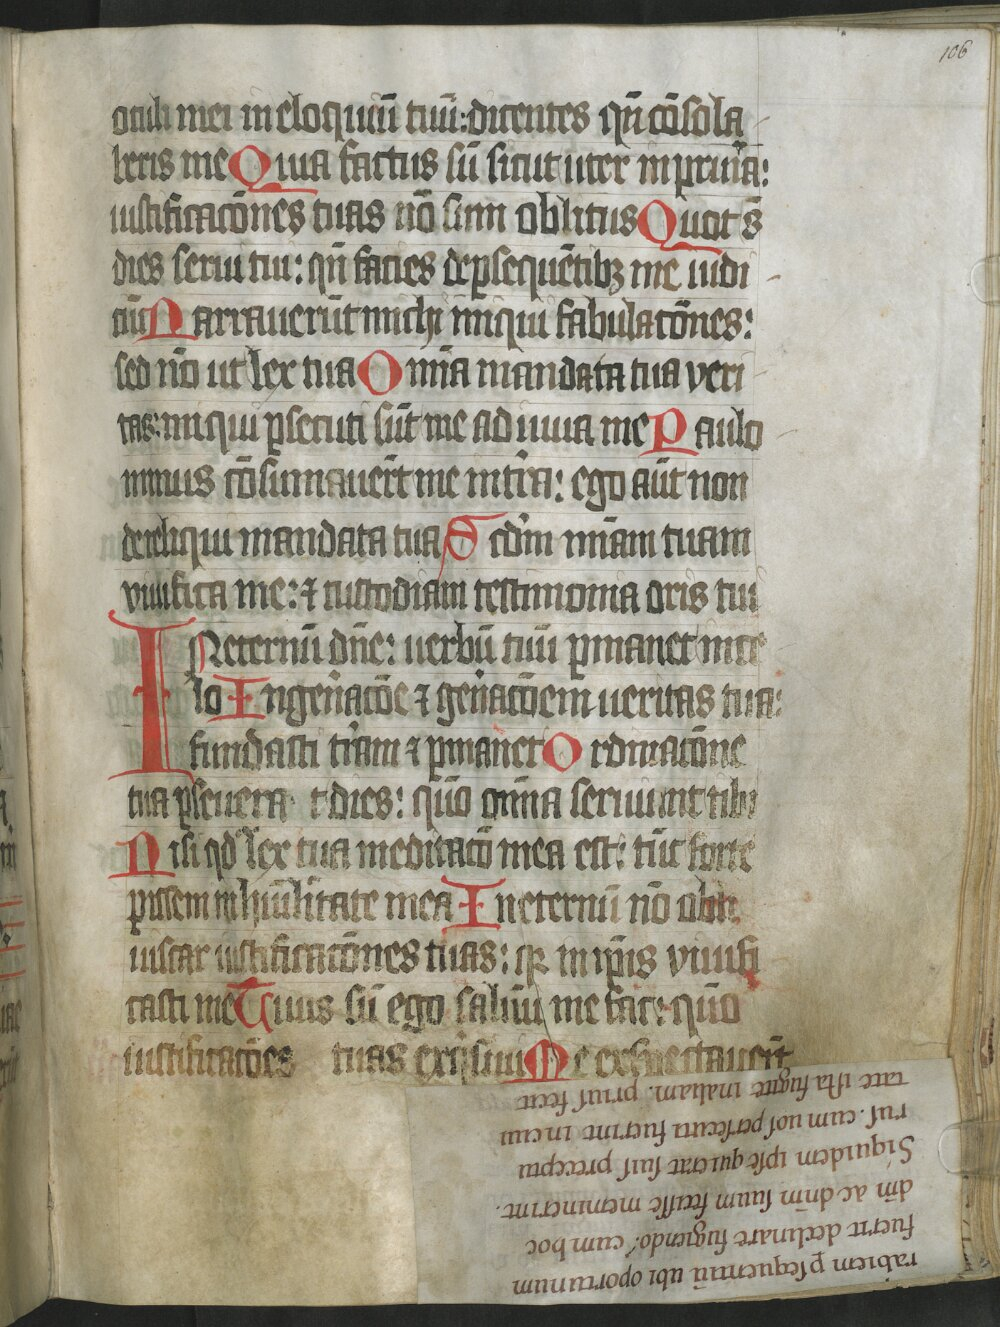 106
oculi mei in eloquiū tuū: dicentes qn̄ cōsola
beris me Quia factus sū sicut uter in pruīa:
iustificacōnes tuas nō sum oblitus Quot s̄
dies serui tui: qn̄ facies de ꝑsequētibꝫ me iudi
ciū Narrauerūt michi iniqui fabulacōnes:
sed nō ut lex tua Omīa mandata tua veri
tas: iniqui ꝑsecuti sūt me adiuua me Paulo
minus cōsumauer̄t me in tr̄a: ego aūt non
dereliqui mandata tua Scd̄m mīam tuam
viuifica me: ⁊ custodiam testimonia oris tui
In eternū dn̄e: uerbū tuū ꝑmanet in ce
lo In gen̄acōe ⁊ gen̄acōem ueritas tua:
fundasti tr̄am ⁊ ꝑmanet Ordinacōne
tua ꝑseuerat dies: qūo om̄ia seruiunt tibi
Nisi qd̓ lex tua meditacō mea est: tūc forte
ꝑissem in hūilitate mea In eternū nō obli
uiscar iustificacōnes tuas: qꝛ in ip̄is viuifi
casti me Tuus sū ego saluū me fac: qūo
iustificacōes tuas exq̄siui Me expectauer̄t
rabiem ꝑsequentiū ubi oportunum
fuerit declinare fugiendo. cum hoc
dm̄ ac dn̄m suum fecisse meminerint.
Siquidem ipse quietat suis precepta
rus. cum uos persecuti fuerint in ciui
tate ista fugite in aliam. prius fecit